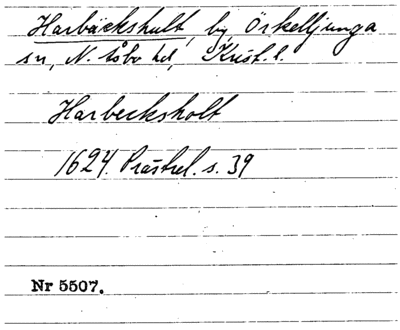 Harbäckshult, by, Örkelljunga
sn, N. Åsbo hd, Krist. l.
Harbecksholt
1624. Prästrel. s. 39
Nr 5507.